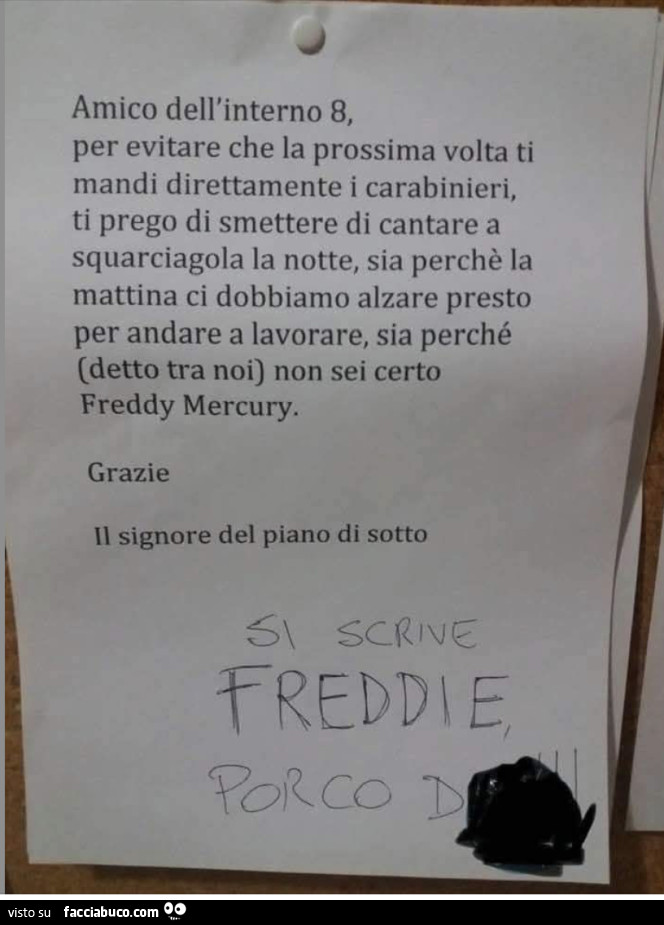 Amico dell'interno 8,
per evitare che la prossima volta ti
mandi direttamente i carabinieri,
ti prego di smettere di cantare a
squarciagola la notte, sia perchè la
mattina ci dobbiamo alzare presto
per andare a lavorare, sia perché
(detto tra noi) non sei certo
Freddy Mercury.
Grazie
Il signore del piano di sotto
SI SCRIVE
FREDDIE,
PORCO D
visto su facciabuco.com